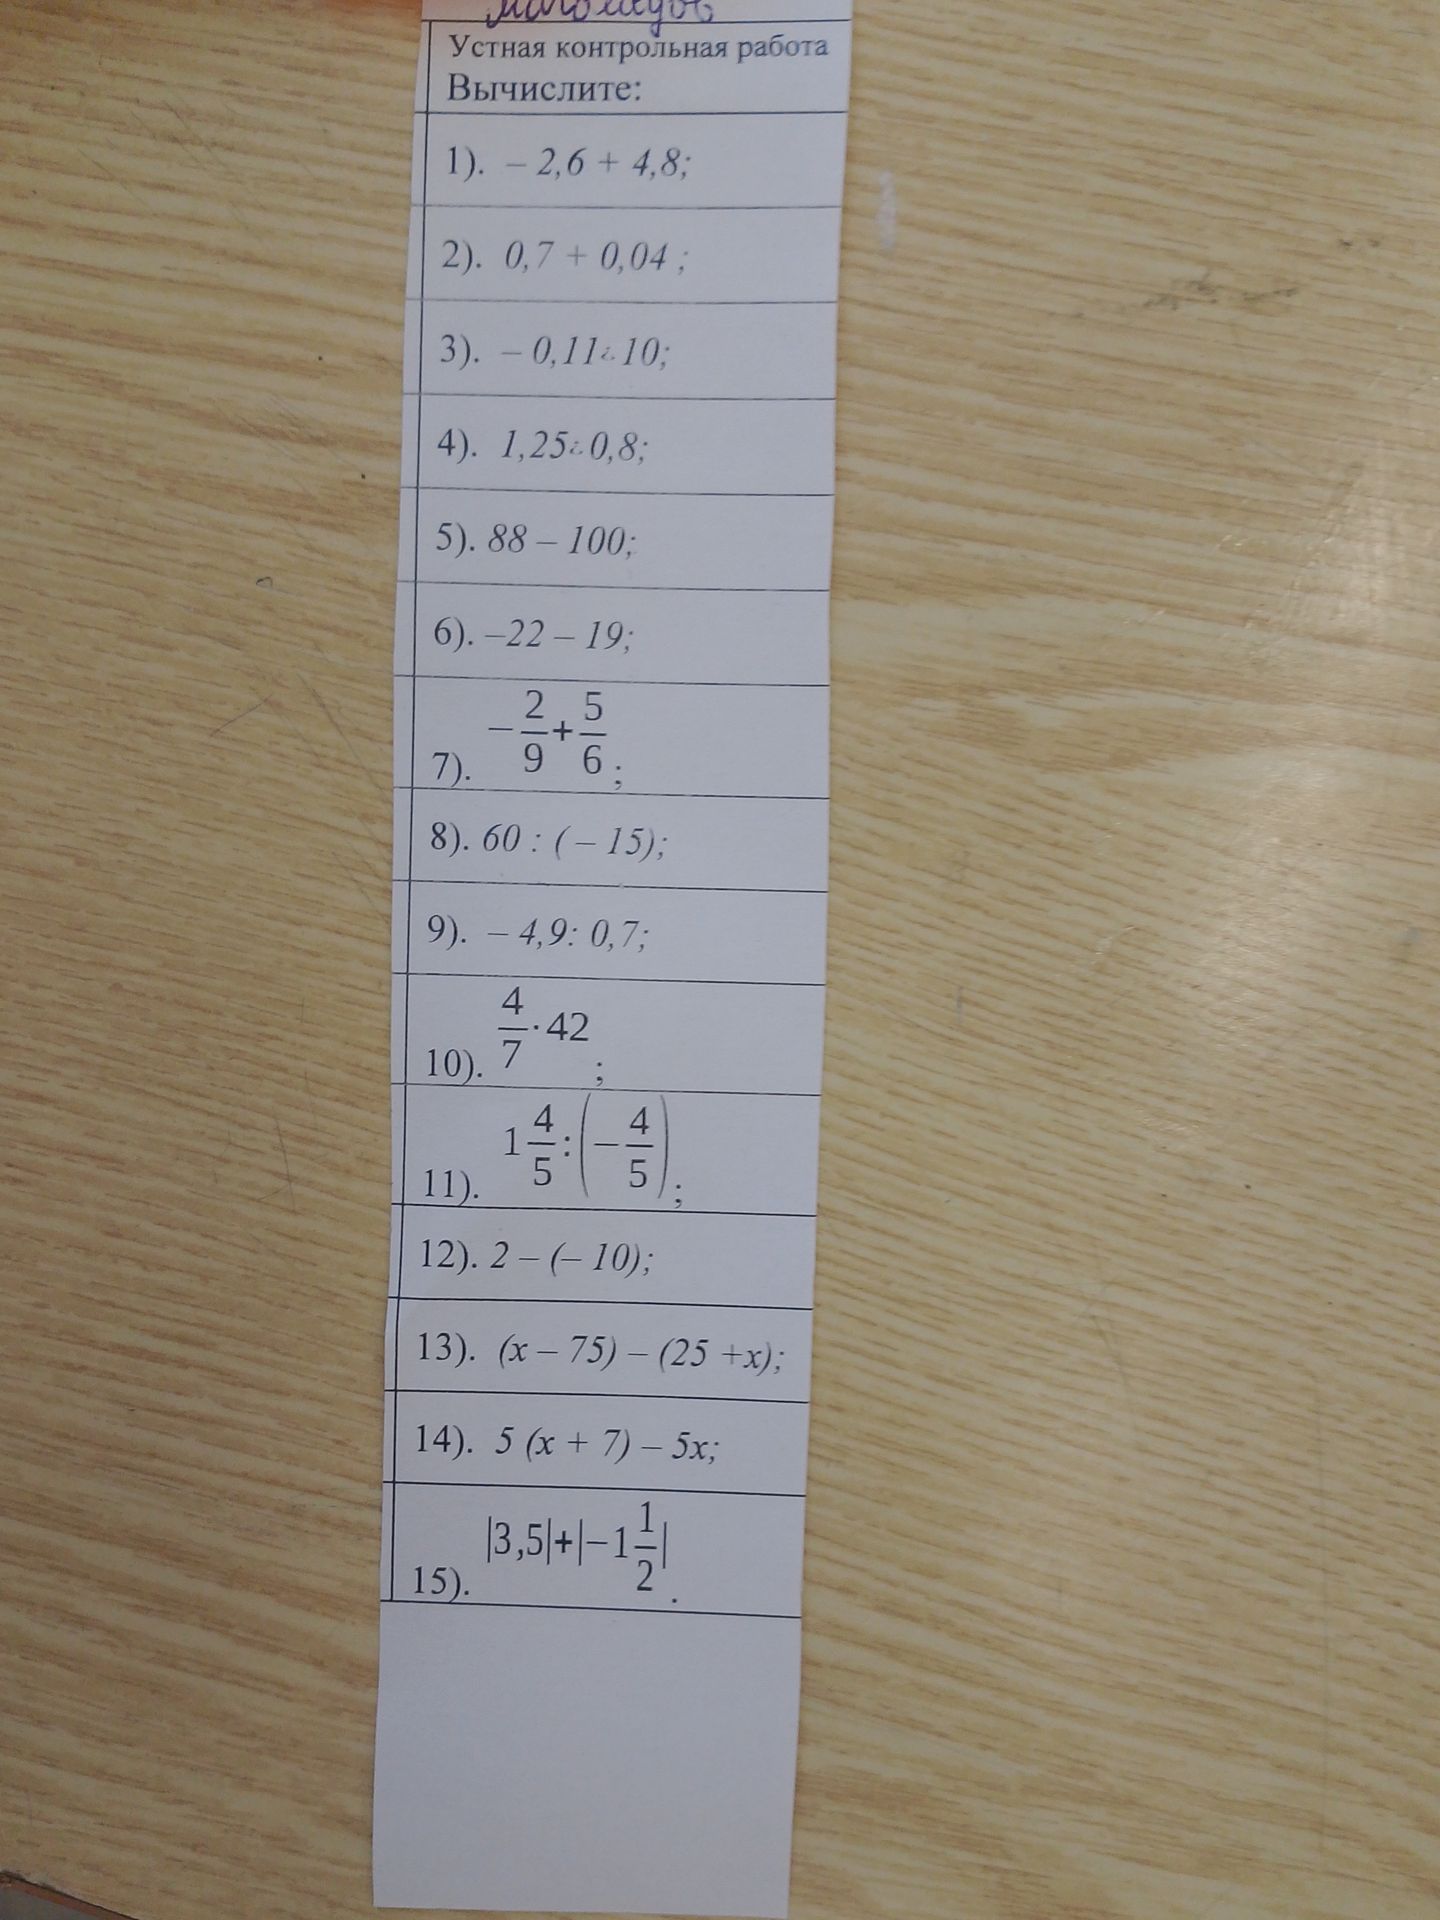 Магомедов
Устная контрольная работа
Вычислите:
1). – 2,6 + 4,8;
2). 0,7 + 0,04 ;
3). – 0,11¿10;
4). 1,25¿0,8;
5). 88 – 100;
6). –22 – 19;
7). −2/9+5/6 ;
8). 60 : ( – 15);
9). – 4,9: 0,7;
10). 4/7·42 ;
11). 1 4/5:(−4/5) ;
12). 2 – (– 10);
13). (x – 75) – (25 +x);
14). 5 (x + 7) – 5x;
15). |3,5|+|−1 1/2| .